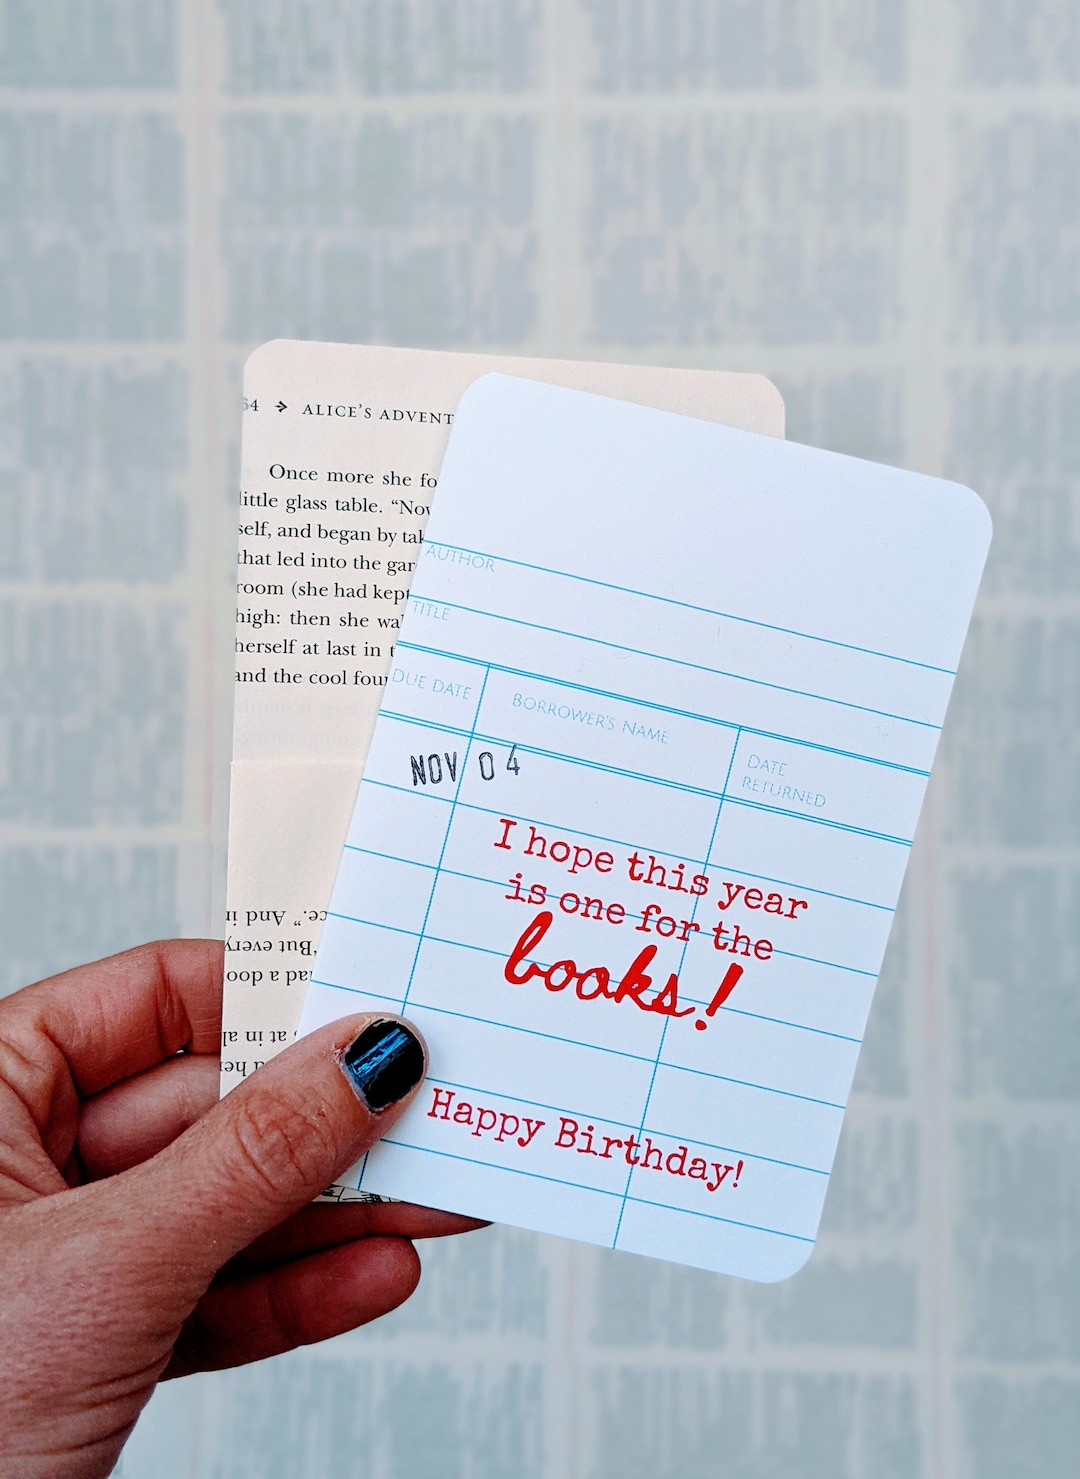 64 → ALICE'S ADVENT
Once more she fo
little glass table. “Nov
self, and began by tak
that led into the gar
room (she had kept
high: then she wal
herself at last in t
and the cool four
ce.” And in
But every
had a doo
at in al
her
AUTHOR
TITLE
DUE DATE
BORROWER'S NAME
DATE
RETURNED
NOV 04
I hope this year
is one for the
books!
Happy Birthday!